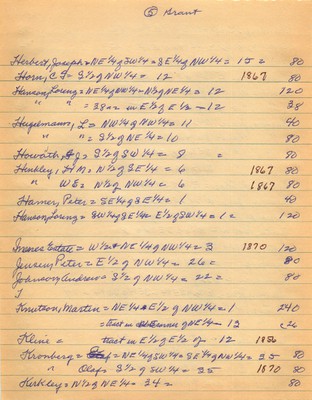 ⑥ Grant
Herbert, Joseph = NE¼ of SW¼ = SE¼ of NW¼ = 15 = 80
Horn, C F = S½ of NW¼ = 12 1867 80
Hanson, Lorenz = NE¼ of NW¼ = N½ of NE¼ = 12 120
" " = 38a in E½ of E½ - 12 38
L = NW¼ of NW¼ = 11 40
" " = S½ of NE¼ = 10 80
Howath, = S½ of SW¼ = 8 = 80
Hinkley, = N½ of SE¼ = 6 1867 80
" W E = N½ of NW¼ = 6 1867 80
Hamer, Peter = SE¼ of SE¼ = 1 40
Hanson, Lorenz = SW¼ of SE¼ = E½ of SW¼ = 1 = 120
Estate = W½ + NE¼ of NW¼ = 3 1870 120
Jensen, Peter = E½ of NW¼ = 26 = 80
Johnson, Andrew = S½ of NW¼ = 22 = 80
Knutson, Martin = NE¼ + E½ of NW¼ = 1 240
= that in of NE¼ - 13 26
Kline = that in E½ of E½ of - 12 1886
Kronberg = = NE¼ of SW¼ = SE¼ of NW¼ = 35 80
" Olaf = S½ of SW¼ = 35 1870 80
Kirkley = N½ of NE¼ = 34 = 80